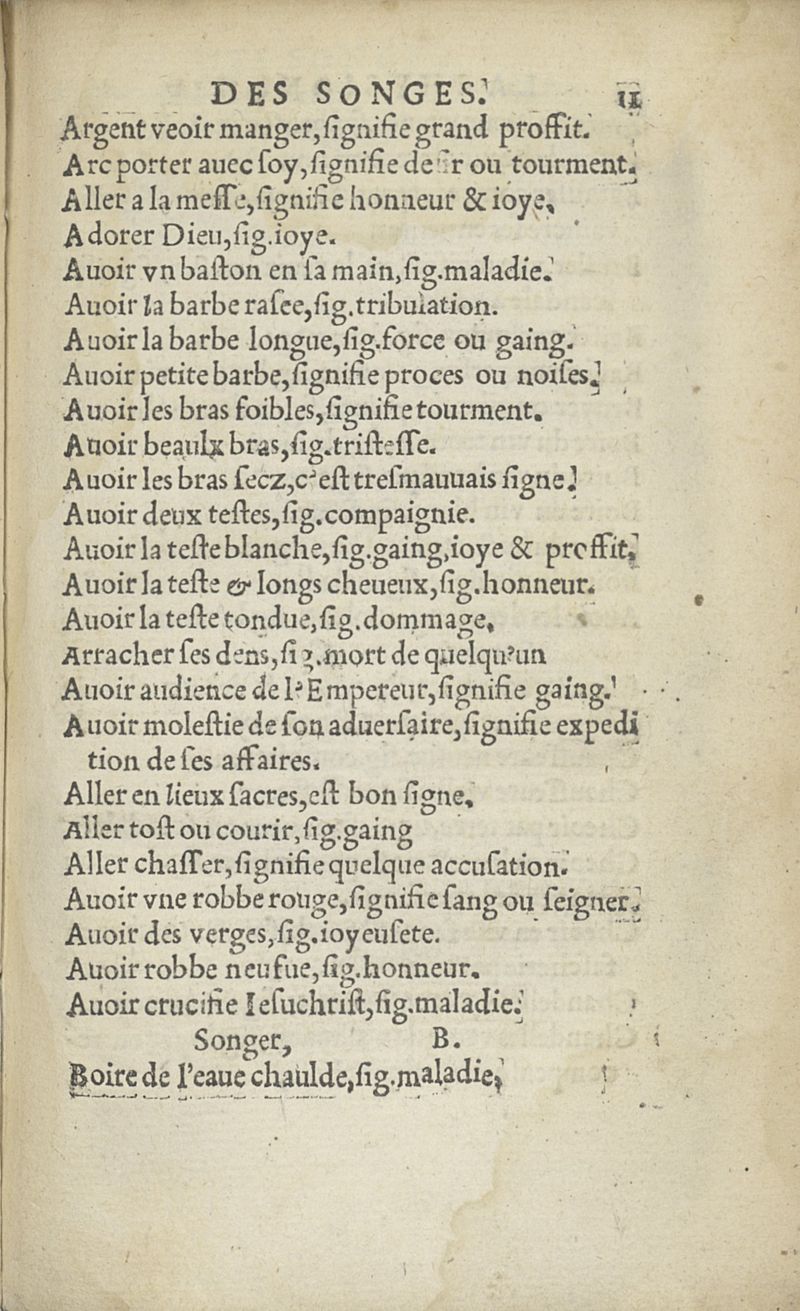 DES SONGES. 11
Argent veoir manger, ſignifie grand proffit.
Arc porter auec ſoy, ſignifie ou tourment.
Aller a la meſſe, ſignifie honneur & ioye,
Adorer Dieu, ſig. ioye.
Auoir vn baſton en ſa main, ſig. maladie.
Auoir la barbe raſee, ſig. tribulation.
Auoir la barbe longue, ſig. force ou gaing.
Auoir petite barbe, ſignifie proces ou noiſes.
Auoir les bras foibles, ſignifie tourment.
Auoir beaulx bras, ſig. triſteſſe.
Auoir les bras ſecz, c'eſt treſmauuais ſigne.
Auoir deux teſtes, ſig. compaignie.
Auoir la teſte blanche, ſig. gaing, ioye & proffit,
Auoir la teſte & longs cheueux, ſig. honneur.
Auoir la teſte tondue, ſig. dommage,
Arracher ſes dens, ſig. mort de quelqu'un
Auoir audience de l'Empereur, ſignifie gaing.
Auoir moleſtie de ſon aduerſaire, ſignifie expedi
tion de ſes affaires.
Aller en lieux ſacres, eſt bon ſigne,
Aller toſt ou courir, ſig. gaing
Aller chaſſer, ſignifie quelque accuſation.
Auoir vne robbe rouge, ſignifie ſang ou ſeigner.
Auoir des verges, ſig. ioyeuſete.
Auoir robbe neufue, ſig. honneur.
Auoir crucifie Ieſuchriſt, ſig. maladie.
Songer, B.
Boire de l'eaue chaulde, ſig. maladie,